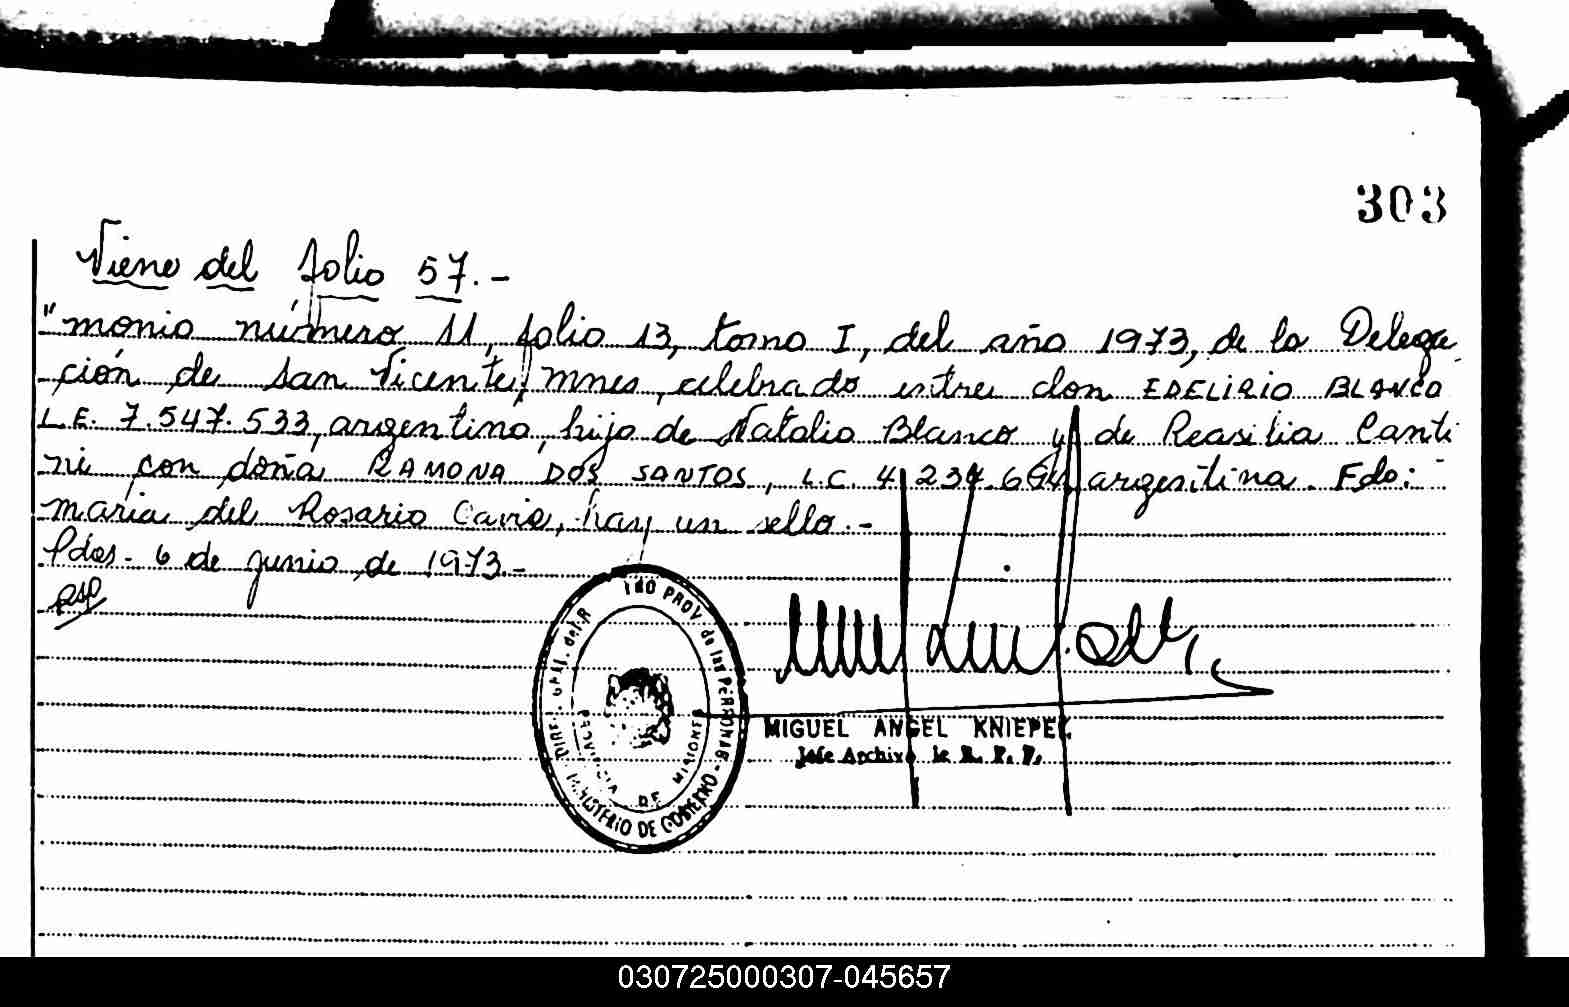 303
Viene del folio 57.-
"monio número 11, folio 13, tomo I, del año 1973, de la Delega
ción de San Vicente, Mnes, celebrado entre don EDELIRIO BLANCO
L.E. 7.547.533, argentino, hijo de Natalio Blanco y de Reasilia Canti
ni con doña RAMONA DOS SANTOS, L.C. 4.237.664 argentina. Fdo:
Maria del Rosario Cavia, hay un sello.-
Pdas. 6 de junio de 1973.-
PROV. de las PERSONAS - MINISTERIO DE GOBIERNO
PROVINCIA DE MISIONES
MIGUEL ANGEL KNIEPEL
Jefe Archivo
030725000307-045657